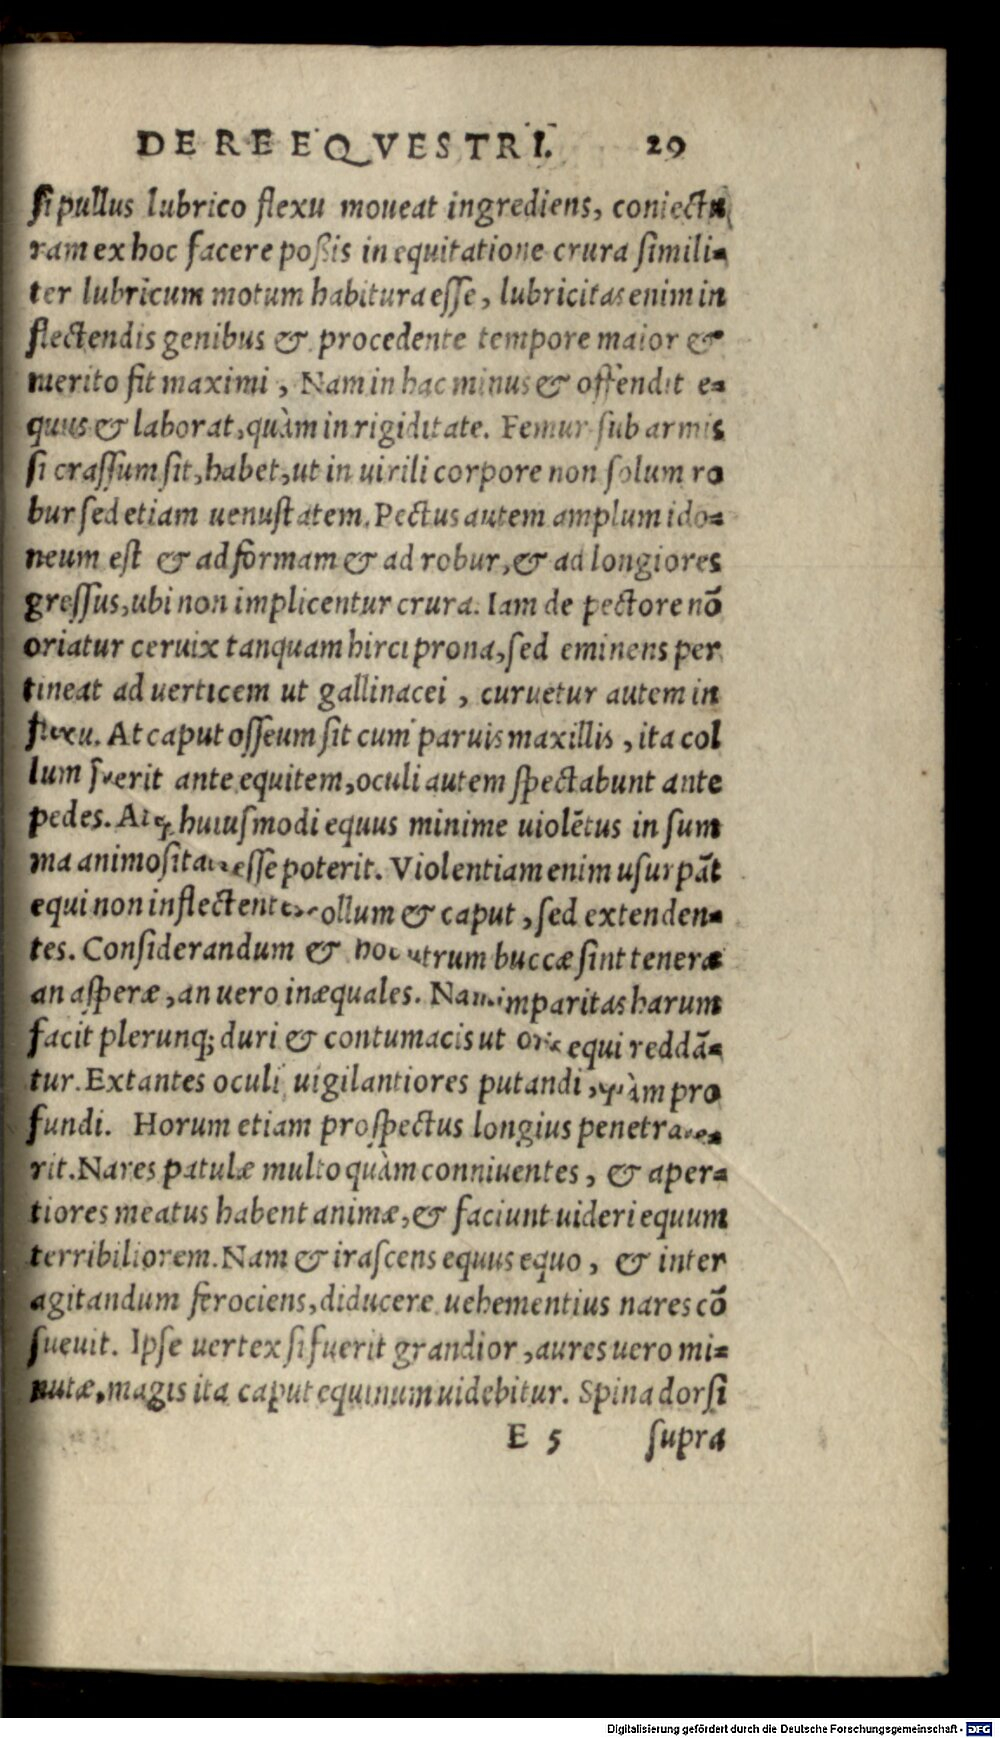 DE RE EQVESTRI. 29
si pullus lubrico flexu moueat ingrediens, coniectu
ram ex hoc facere poßis in equitatione crura simili-
ter lubricum motum habitura esse, lubricitas enim in
flectendis genibus & procedente tempore maior &
merito fit maximi, Nam in hac minus & offendit e-
quus & laborat, quàm in rigiditate. Femur sub armis
si crassum sit, habet, ut in uirili corpore non solum ro
bur sed etiam uenustatem. Pectus autem amplum ido-
neum est & ad formam & ad robur, & ad longiores
gressus, ubi non implicentur crura. Iam de pectore nõ
oriatur ceruix tanquam hirci prona, sed eminens per
tineat ad uerticem ut gallinacei, curuetur autem in
flexu. At caput osseum sit cum paruis maxillis, ita col
lum fuerit ante equitem, oculi autem spectabunt ante
pedes. Atq; huiusmodi equus minime uiolẽtus in sum
ma animositate esse poterit. Violentiam enim usurpãt
equi non inflectentes collum & caput, sed extenden-
tes. Considerandum & hoc utrum buccæ sint teneræ
an asperæ, an uero inæquales. Nam imparitas harum
facit plerunq; duri & contumacis ut oris equi reddã-
tur. Extantes oculi uigilantiores putandi, quàm pro
fundi. Horum etiam prospectus longius penetraue-
rit. Nares patulæ multo quàm conniuentes, & aper-
tiores meatus habent animæ, & faciunt uideri equum
terribiliorem. Nam & irascens equus equo, & inter
agitandum ferociens, diducere uehementius nares cõ
sueuit. Ipse uertex si fuerit grandior, aures uero mi-
nutæ, magis ita caput equinum uidebitur. Spina dorsi
E 5 supra
Digitalisierung gefördert durch die Deutsche Forschungsgemeinschaft - DFG